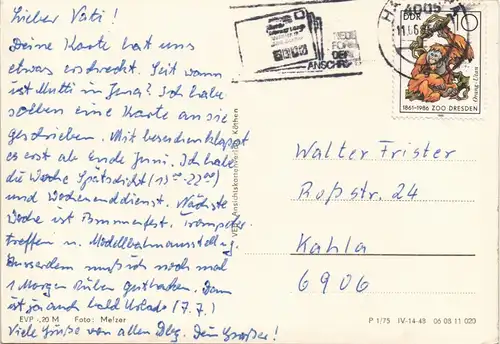 Lieber Vati!
Deine Karte hat uns
etwas erschreckt. Seit wann
ist Mutti in Jena? Ich habe
soeben eine Karte an sie
geschrieben. Mit besuchen klappt
es erst ab Ende Juni. Ich habe
die Woche Spätschicht (13⁰⁰-22⁰⁰)
und Wochenenddienst. Nächste
Woche ist Brunnenfest, Trompeter-
treffen u. Modellbahnausstellg.
Ausserdem muß ich noch mal
1 Morgen Rüben guthacken. Dann
ist ja auch bald Urlaub (7.7.)
Viele Grüße von allen Dbg. Dein Großer!
EVP -,20 M Foto: Melzer
VEB Ansichtskartenverlag Köthen
NEUE
FORM
DER
ANSCHRIFT
4009
11.6.86
DDR 10
Orang-Utan
1861-1986 ZOO DRESDEN
Walter Frister
Roßstr. 24
Kahla
6906
P 1/75 IV-14-48 06 08 11 020